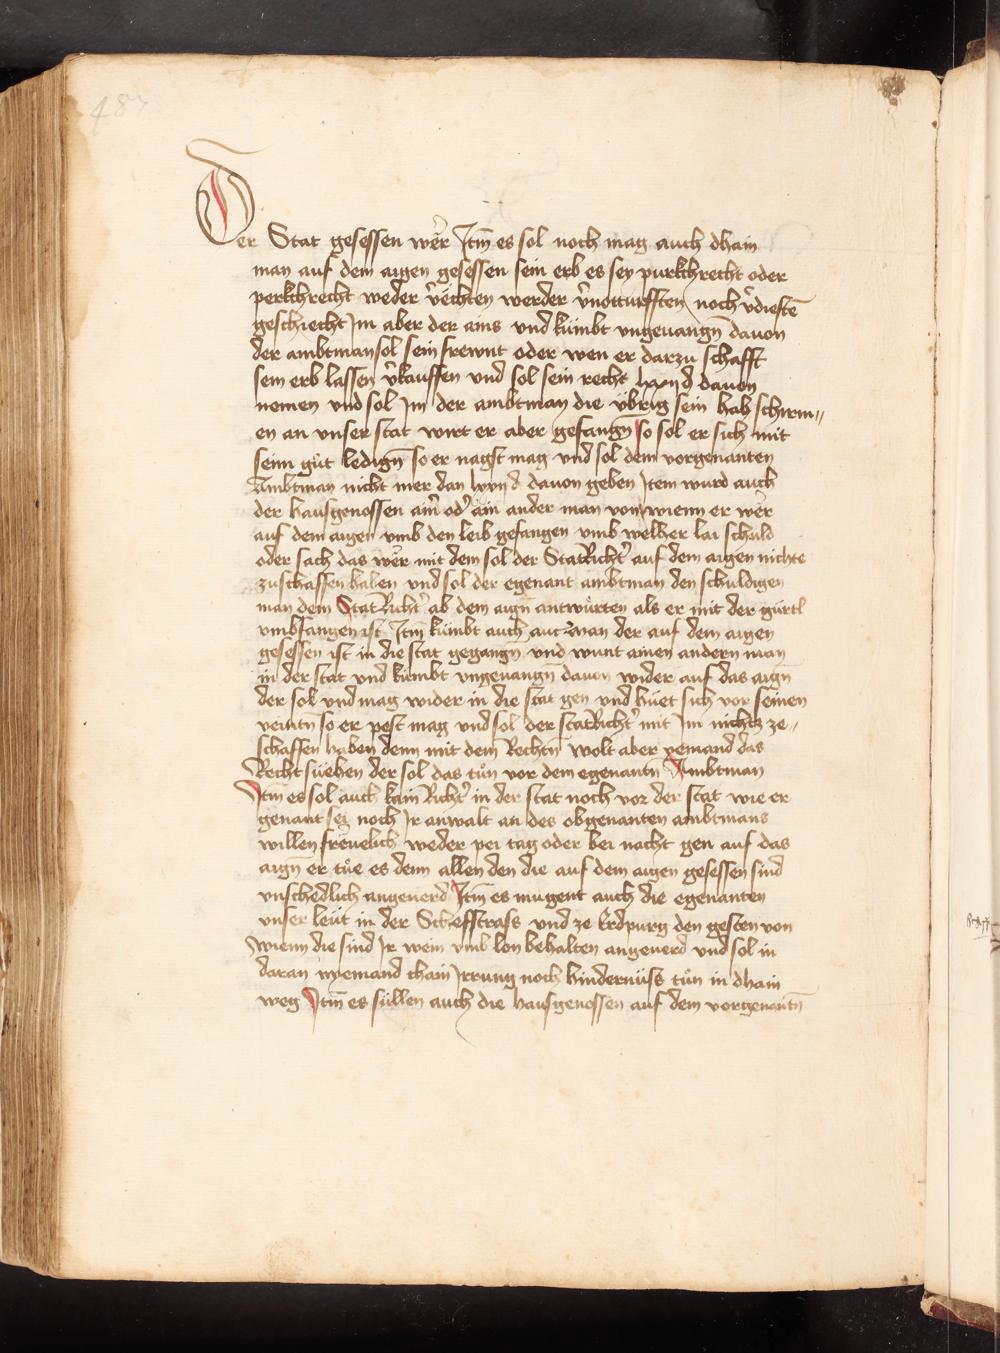 487
Der Stat gesessen wer̉ Itm̄ es sol noch mag auch dhain
man auf dem aigen gesessen sein erb es sey purkchrecht oder
perkchrecht weder v̉ëchten werder v̉notturfften noch v̉diestē
geschiecht Im aber der ains vnd kümbt vngeuangn̄ dauon
der ambtman sol sein frewnt oder wen er darzu schafft
sein erb lassen v̉kauffen vnd sol sein recht lxxij d dauon
nemen vnd sol Im der ambtman die übrig sein hab schirm〃
en an vnser stat wirt er aber gefangn̄ so sol er sich mit
seim gůt ledign̄ so er nagst mag vnd sol dem vorgenanten
Ambtman nicht mer dan lxxij d dauon geben Item wurd auch
der hausgenossen ain̉ od̉ ain ander man von wienn er wer̉
auf dem aigen vmb den leib gefangen vmb welher lai schuld
oder sach das wer̉ mit dem sol der StatRicht̉ auf dem aigen nichts
zuschaffen haben vnd sol der egenant ambtman den schuldigen
man dem StatRicht̉ ab dem aign̄ antwürten als er mit der gürtl
vmbfangen ist Itm̄ kümbt auch ain man der auf dem aigen
gesessen ist in die stat gegangn̄ vnd wunt ainen andern man
in der stat vnd kümbt vngeuangn̄ dauon wider auf das aign̄
der sol vnd mag wider in die stat gen vnd hüet sich vor seinen
veintn so er pest mag vnd sol der statRicht̉ mit Im nichts ze〃
schaffen haben denn mit dem Rechtn̄ wolt aber yemand das
Recht süehen der sol das tůn vor dem egenantn̄ Ambtman
Itm̄ es sol auch kain Richt̉ in der stat noch vor der stat wie er
genant sei noch Ir anwalt an des obgenanten ambtmans
willen freuelich weder pei tag oder bei nacht gen auf das
aign̄ er tůe es denn allen den die auf dem aigen gesessen sind
vnschedlich angeuerd Itm̄ es mugent auch die egenanten
vnser leüt in der Schefstrass vnd ze Erdpurg den gesten von
wienn die sind Ir wein vmb lon behalten angeuerd vnd sol in
daran nyemand chain Irrung noch hindernüss tůn in dhain
weg Itm̄ es süllen auch die hausgenossen auf dem vorgenantn̄